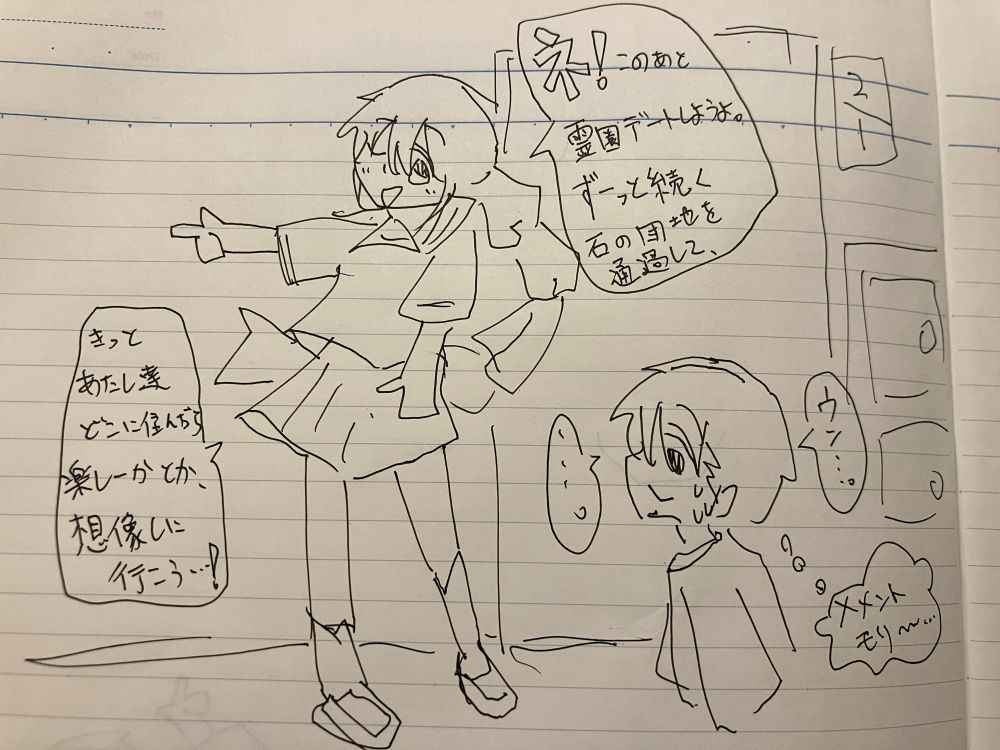 ネ!このあと
霊園デートしようよ。
ずーっと続く
石の団地を
通過して、
きっと
あたし達
どこに住んだら
楽しーかとか、
想像しに
行こう…!
……。
ウン…。
メメント
モリ〜…
2/1
No.
Date